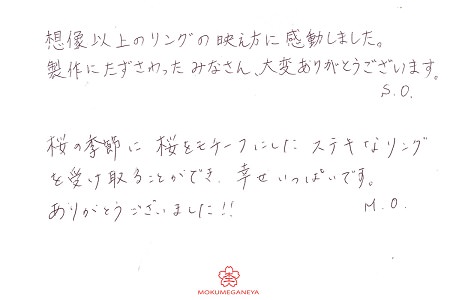 想像以上のリングの映え方に感動しました。
製作にたずさわったみなさん、大変ありがとうございます。
S.O.
桜の季節に桜をモチーフにしたステキなリング
を受け取ることができ、幸せいっぱいです。
ありがとうございました!!
M.O.
MOKUMEGANEYA